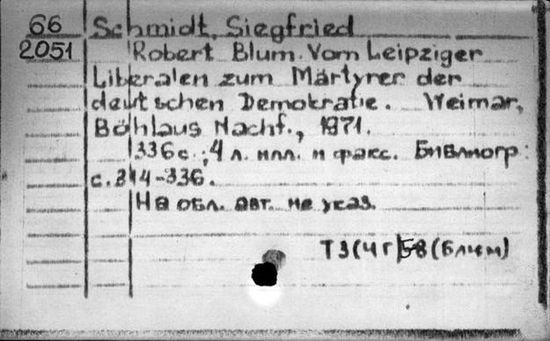 66 Schmidt, Siegfried
2051 Robert Blum. Vom Leipziger
Liberalen zum Märtyrer der
deutschen Demokratie. Weimar,
Böhlaus Nachf., 1971.
336 с.; 4 л. илл. и факс. Библиогр:
с. 314-336.
На обл. авт. не указ.
Т3(4Г)58(Блум)